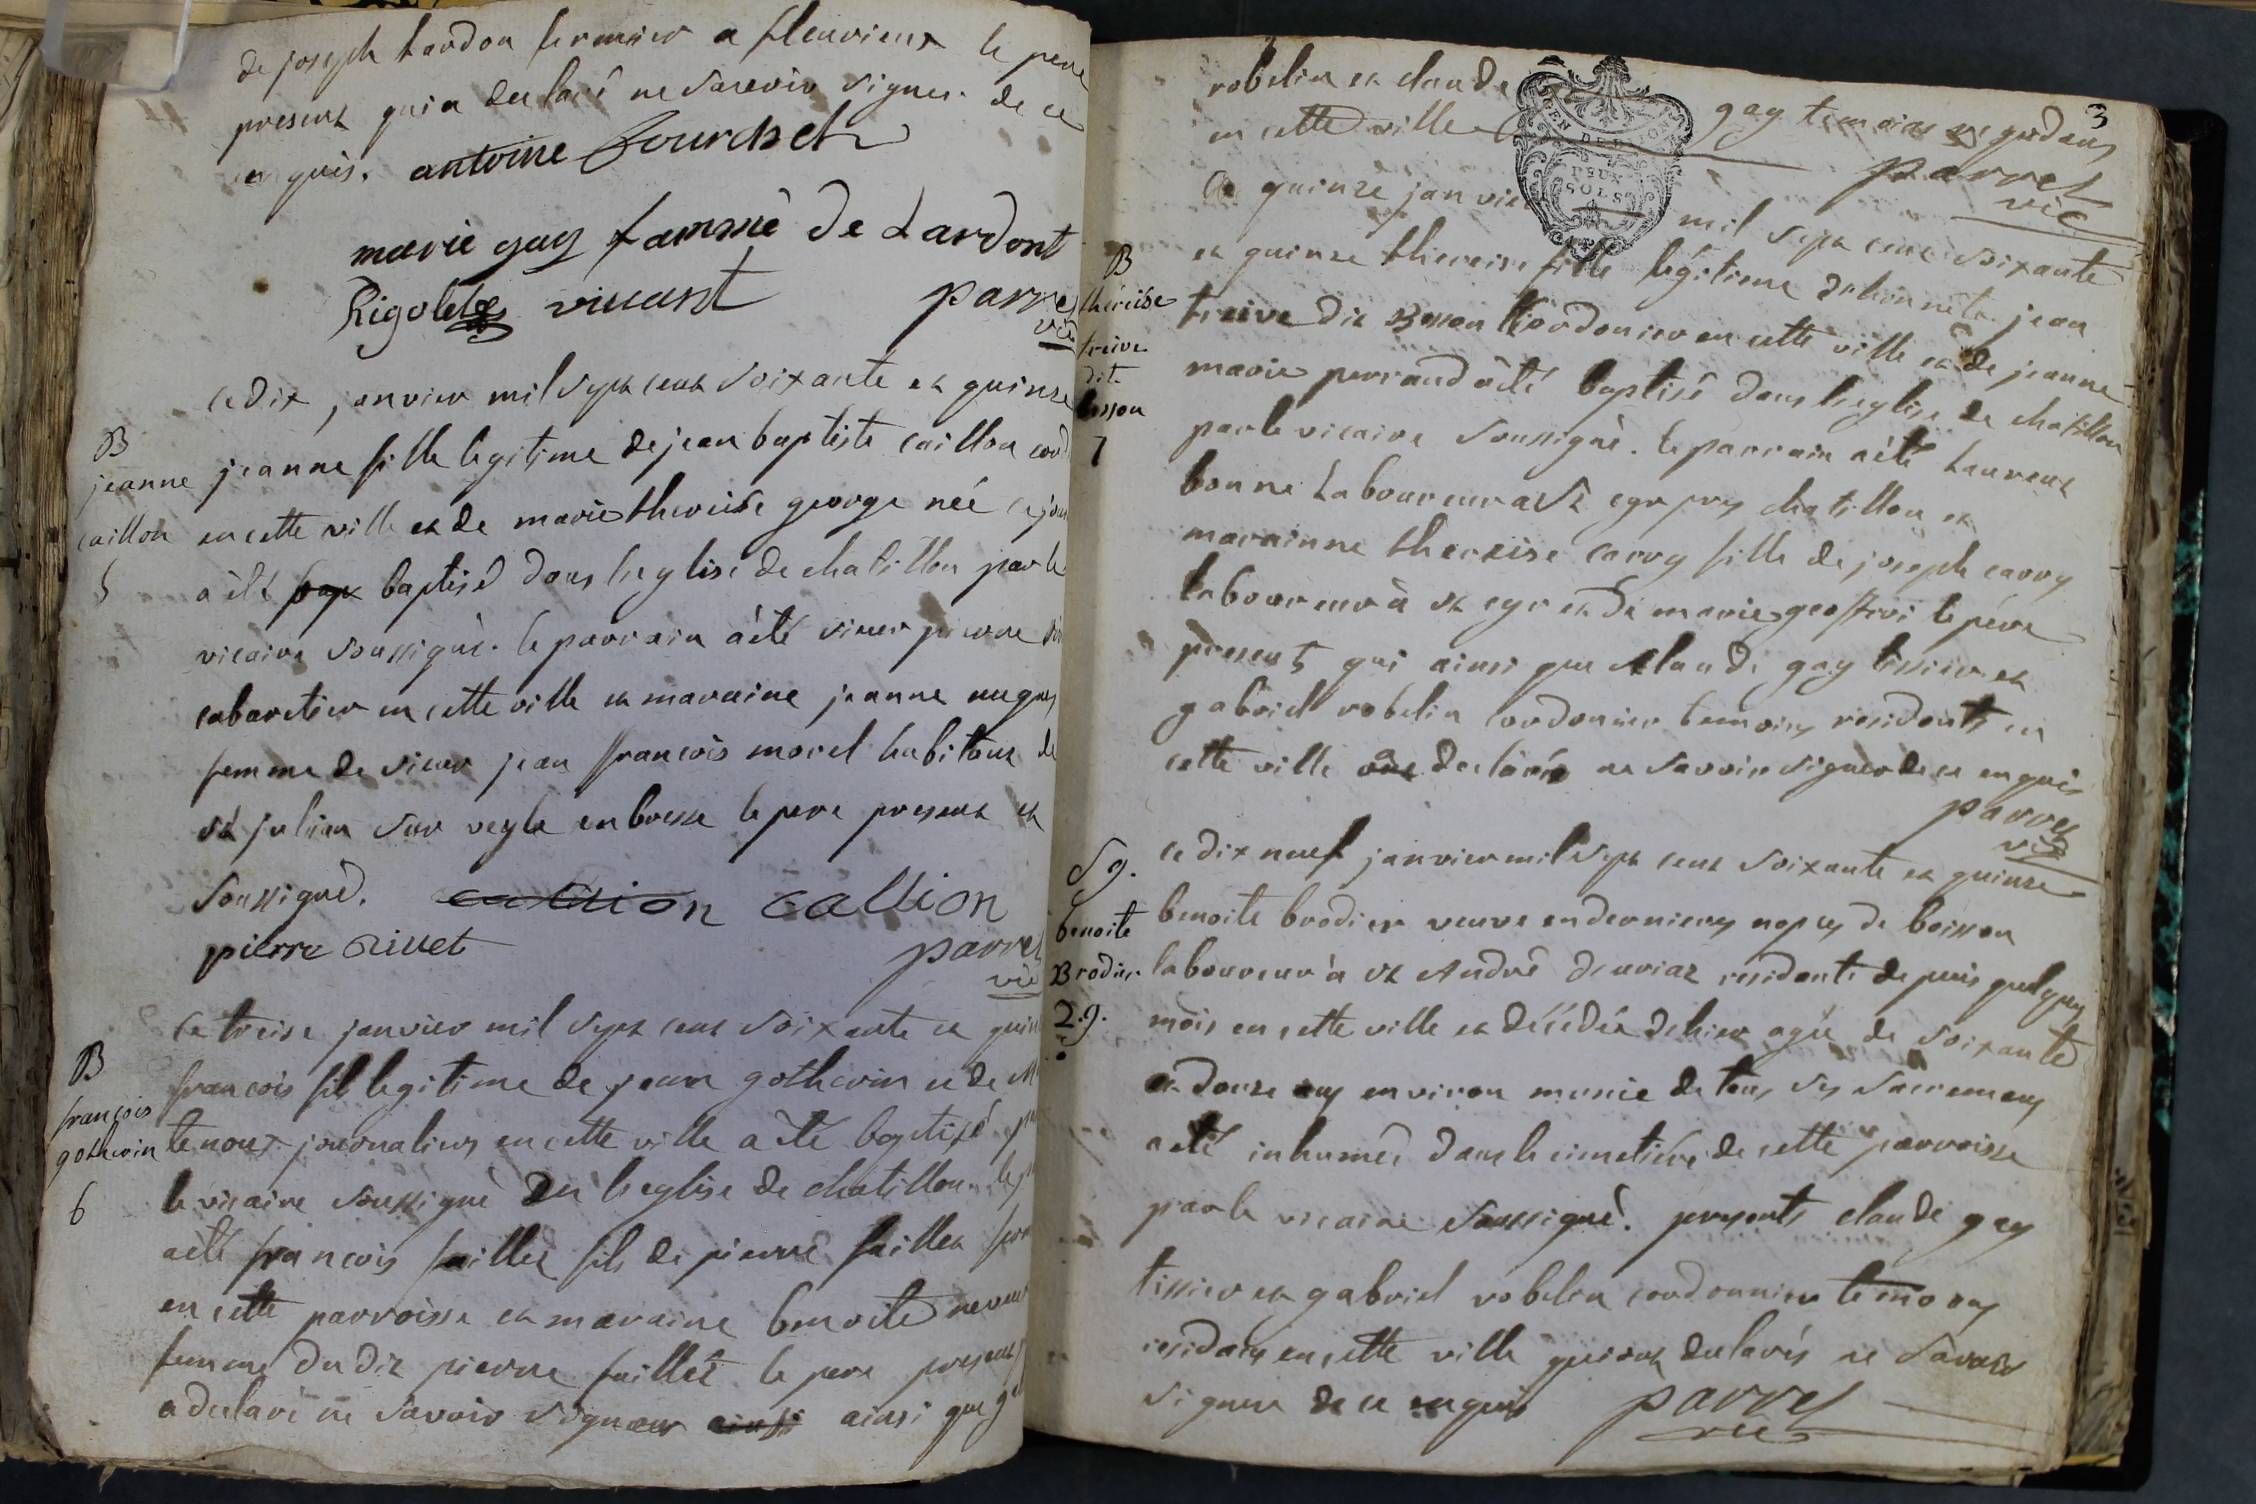 de joseph Lardon fermier a fleurieux le pere
present qui a declaré ne Savoir signer de ce
enquis. antoine Fourchet
marie gay famme de Lardont
Rigolet vincent parret
vic
ce dix janvier mil Sept cent Soixante et quinze
B
jeanne
caillon
5
jeanne fille legitime de jean baptiste caillon cord
en cette ville et de marie thereise george née ce jour
a été bap baptisé dans l'eglise de chatillon par le
vicaire Soussigné. le parrain a été sieur pierre
cabaretier en cette ville et maraine jeanne
femme de sieur jean françois morel habitant de
St julien Sur veyle en bresse le pere present et
Soussigné. callion callion
pierre Rivet
parret
vic
Ce treise janvier mil Sept cent Soixante et quin
B
françois
gotheroin
6
francois fils legitime de jean gotheroin et de
journaliers en cette ville a été baptisé
le vicaire Soussigné en l'eglise de chatillon
a été françois faillet fils de pierre faillet
en cette parroisse et maraine benoite
femme dudit pierre faillet le pere present
a declaré ne Savoir Signer ainsi ainsi que
3
robelin et claude gay temoins
en cette ville
parret
vic
GEN DE DIJON
DEUX
SOLS
Ce quinze janvier mil Sept cent Soixante
B
thereise
treive
dit
besson
7
et quinze thereise fille légitime d'honnête jean
treive dit Besson Cordonier en cette ville et de jeanne
marie perraud a été baptisé dans l'eglise de chatillon
par le vicaire Soussigné. le parrain a été Laurent
bonne Laboureur a St cyr pres chatillon et
marainne thereise carry fille de joseph carry
laboureur à St cyr et de marie geoffroi le pére
present qui ainsi que Claude gay tissier et
gabriel robelin cordonier temoins residents en
cette ville ont declarés ne Savoir signer de ce enquis
parret
vic
S 9.
benoite
Brodier
2.9.
ce dix neuf janvier mil Sept cent Soixante et quinze
benoite brodier veuve en dernieres nopces de boisson
laboureur à St André residente depuis quelques
mois en cette ville et décédée d'hier agée de Soixante
et douze ans environ munie de tous Ses Sacremens
a été inhumée dans le cimetière de cette parroisse
par le vicaire Soussigné. presents claude gay
tissier et gabriel robelin cordonnier temoins
residans en cette ville qui ont declarés ne Savoir
Signer de ce enquis parret
vic